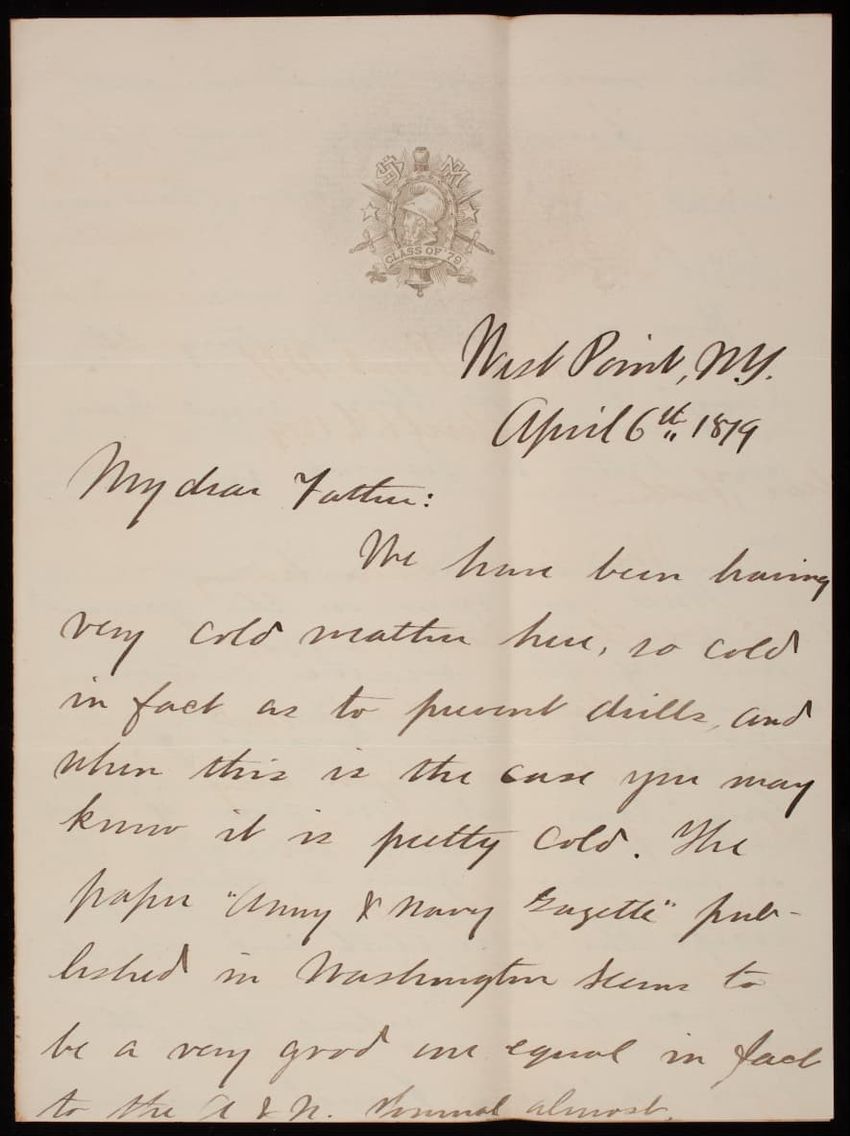 CLASS OF '79
West Point, N.Y.
April 6th, 1879
My dear Father:
We have been having
very cold weather here, so cold
in fact as to prevent drills, and
when this is the case you may
know it is pretty cold. The
paper "Army & Navy Gazette" pub-
lished in Washington seems to
be a very good one equal in fact
to the A & N. Journal almost.